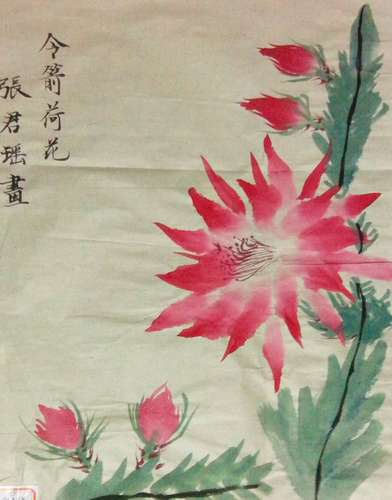 令箭荷花
張君瑶畫